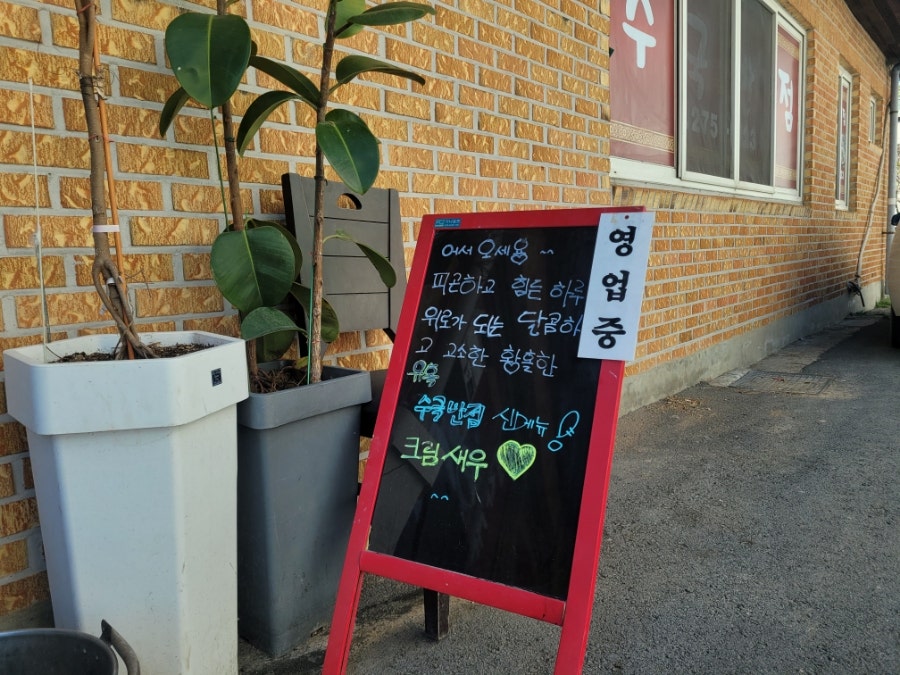 어서 오세용 ~~
피곤하고 힘든 하루
위로가 되는 달콤하
고 고소한 황홀한
유혹
수국반점 신메뉴!
크림새우
^^
영업중
주
정
275